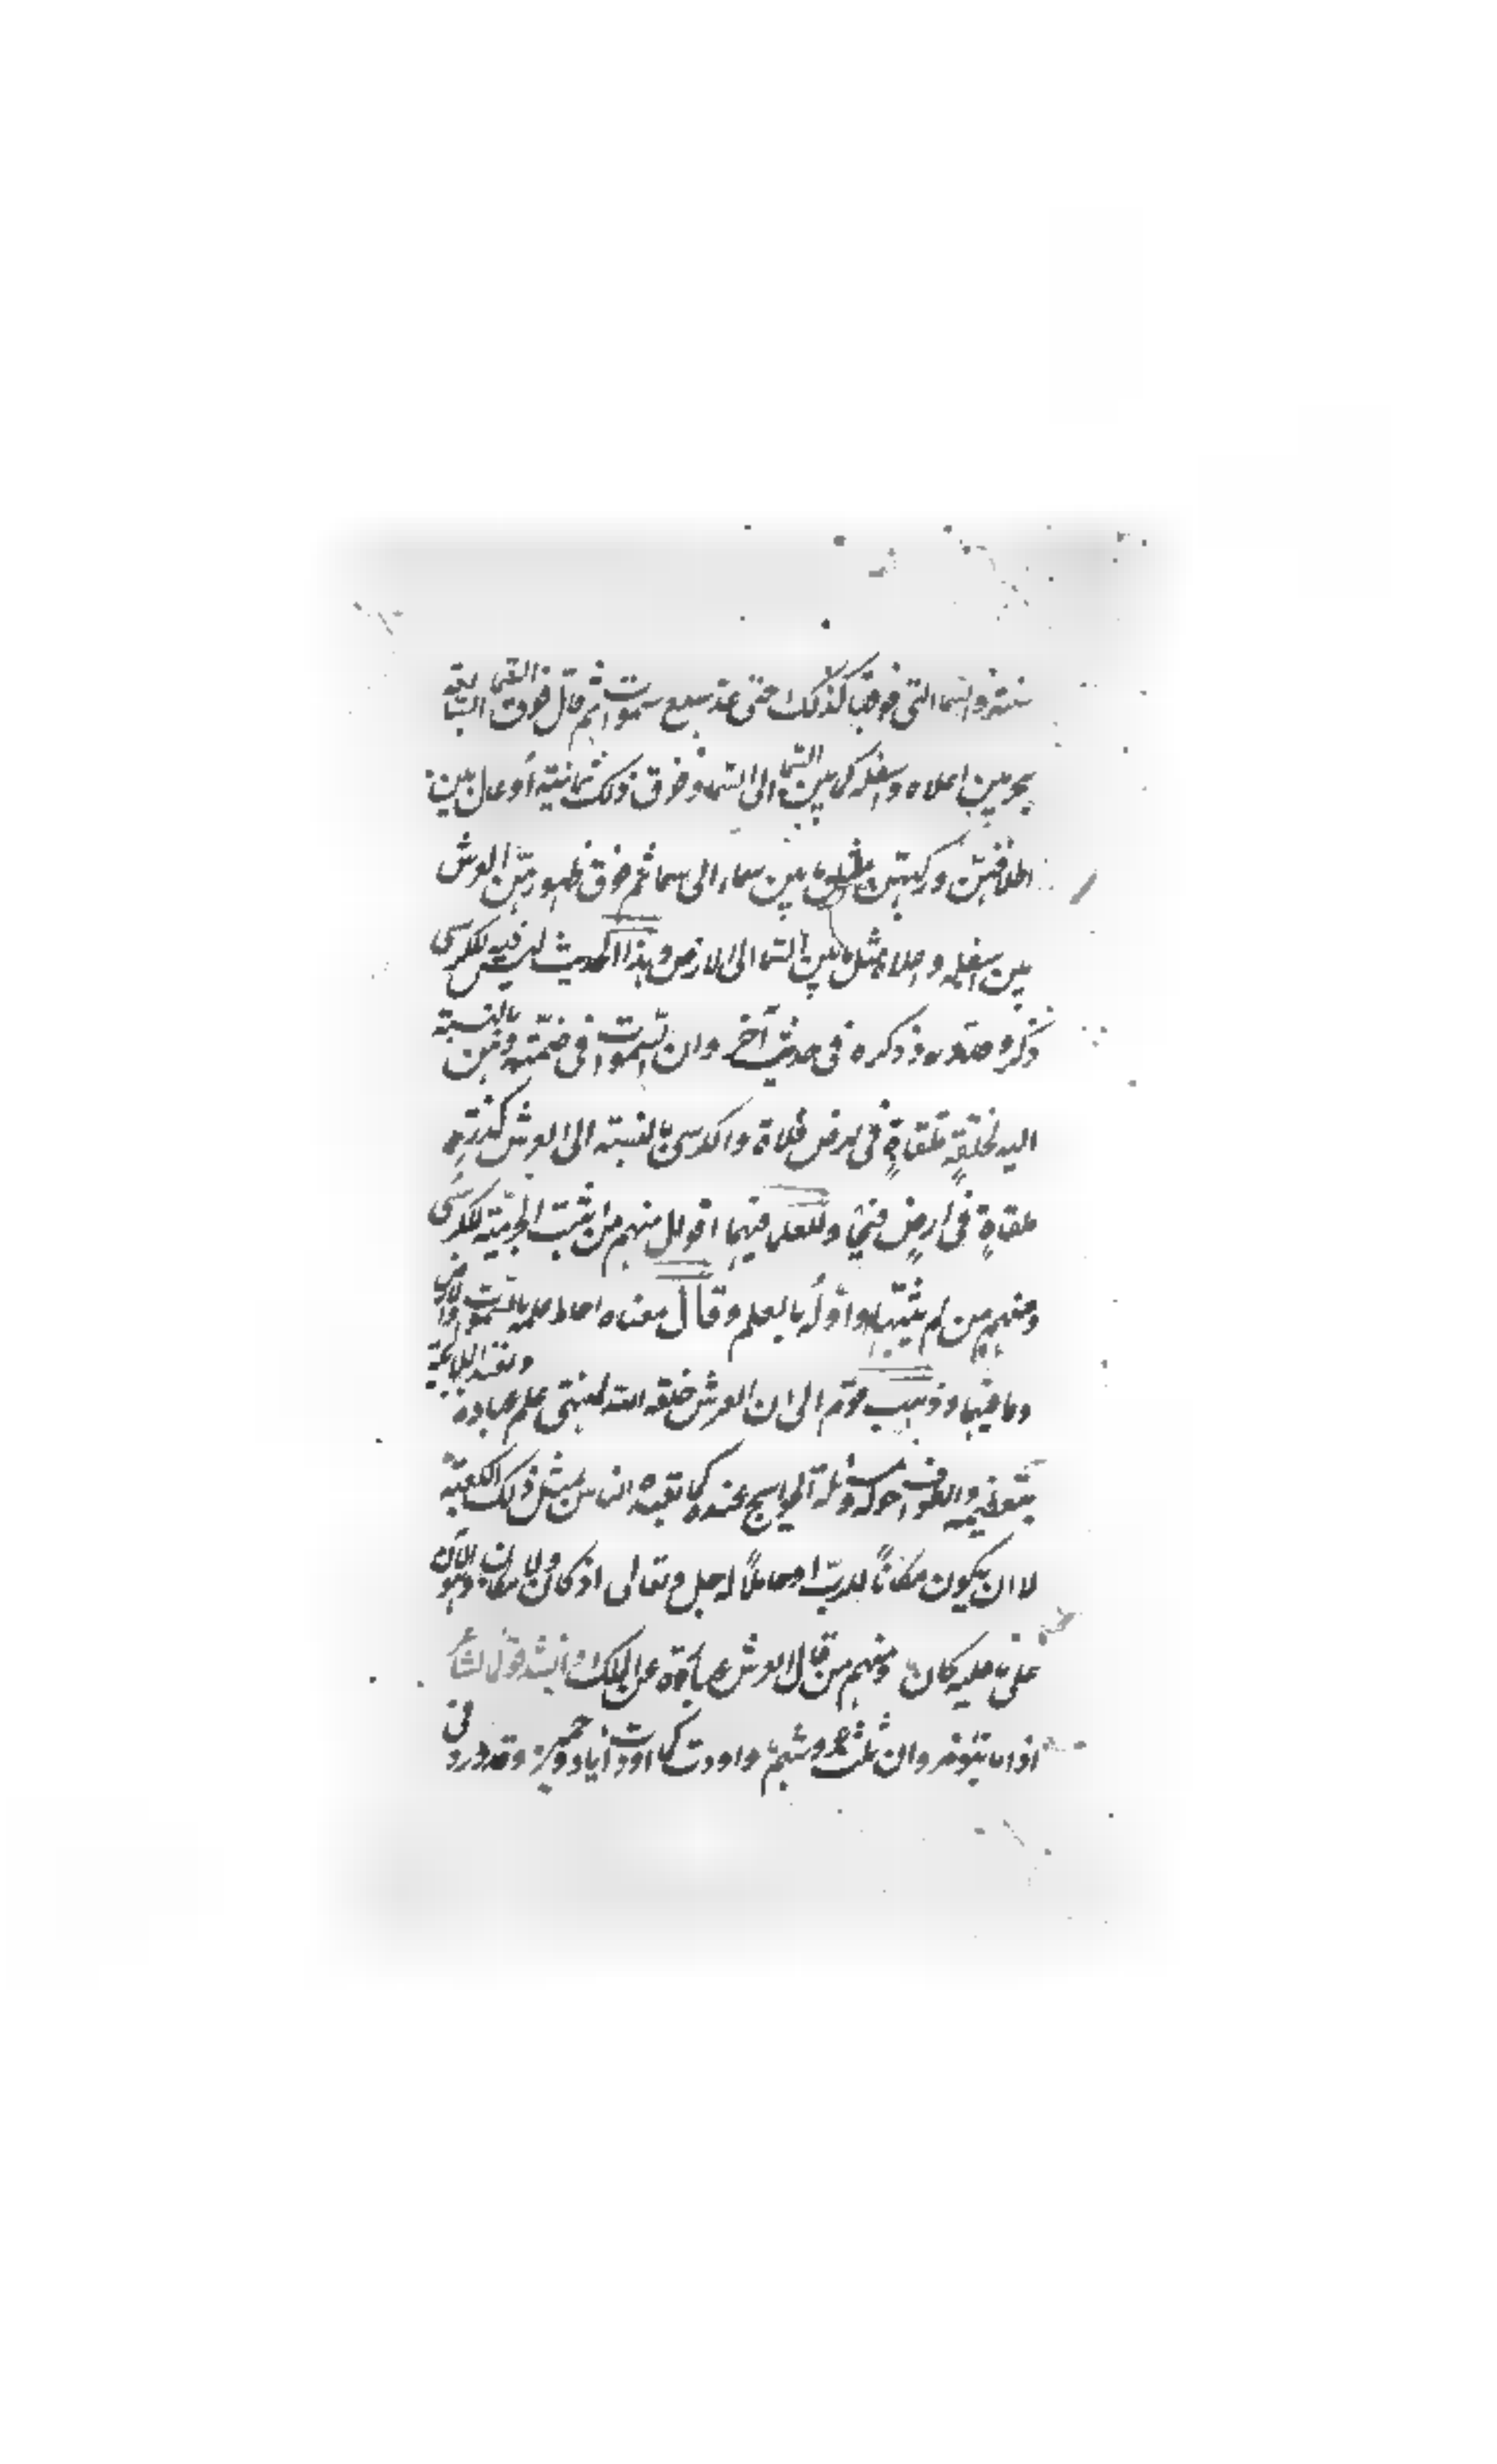 سنة والسما التى فوقها كذلك حتى عد سبع سموات ثم قال فوق السما السابعة
بحر بين اعلاه واسفله كما بين السما الى السما وفوق ذلك ثمانية أوعال بين
اظلافهن وركبهن مثل ما بين سماء الى سما ثم فوق ظهورهن العرش
بين اسفله واعلاه مثل ما بين السما الى الارض وهذا الحديث ليس فيه للكرسى
ذكر وقد ذكره فى حديث آخر وان السموات فى ضمنه وهن بالنسبة
اليه كحلقة ملقاة فى ارض فلاة والكرسى بالنسبة الى العرش كذرة
ملقاة فى أرض وللعلما فيهما اقوال منهم من اثبت الجرمية للكرسى
ومنهم من لم يثبتها وأوله بالعلم وقال معناه احاط علمه بالسموات والارض
وما فيها وذهب قوم الى ان العرش خلقه الله عباده
بتعظيمه والطواف حوله ومسئلة الحوايج عنده كما تعبد الناس بمثل ذلك الكعبة
لا ان يكون مكانا للرب او حاملا له جل وتعالى اذ كان ولا مكان وهو الآن
على ما عليه كان ومنهم من قال العرش عبارة عن الملك وانشد قول الشا
اذا ما بنو وان ثلت عروشهم واودت كما اودت أياد وحمير وقد ورد فى